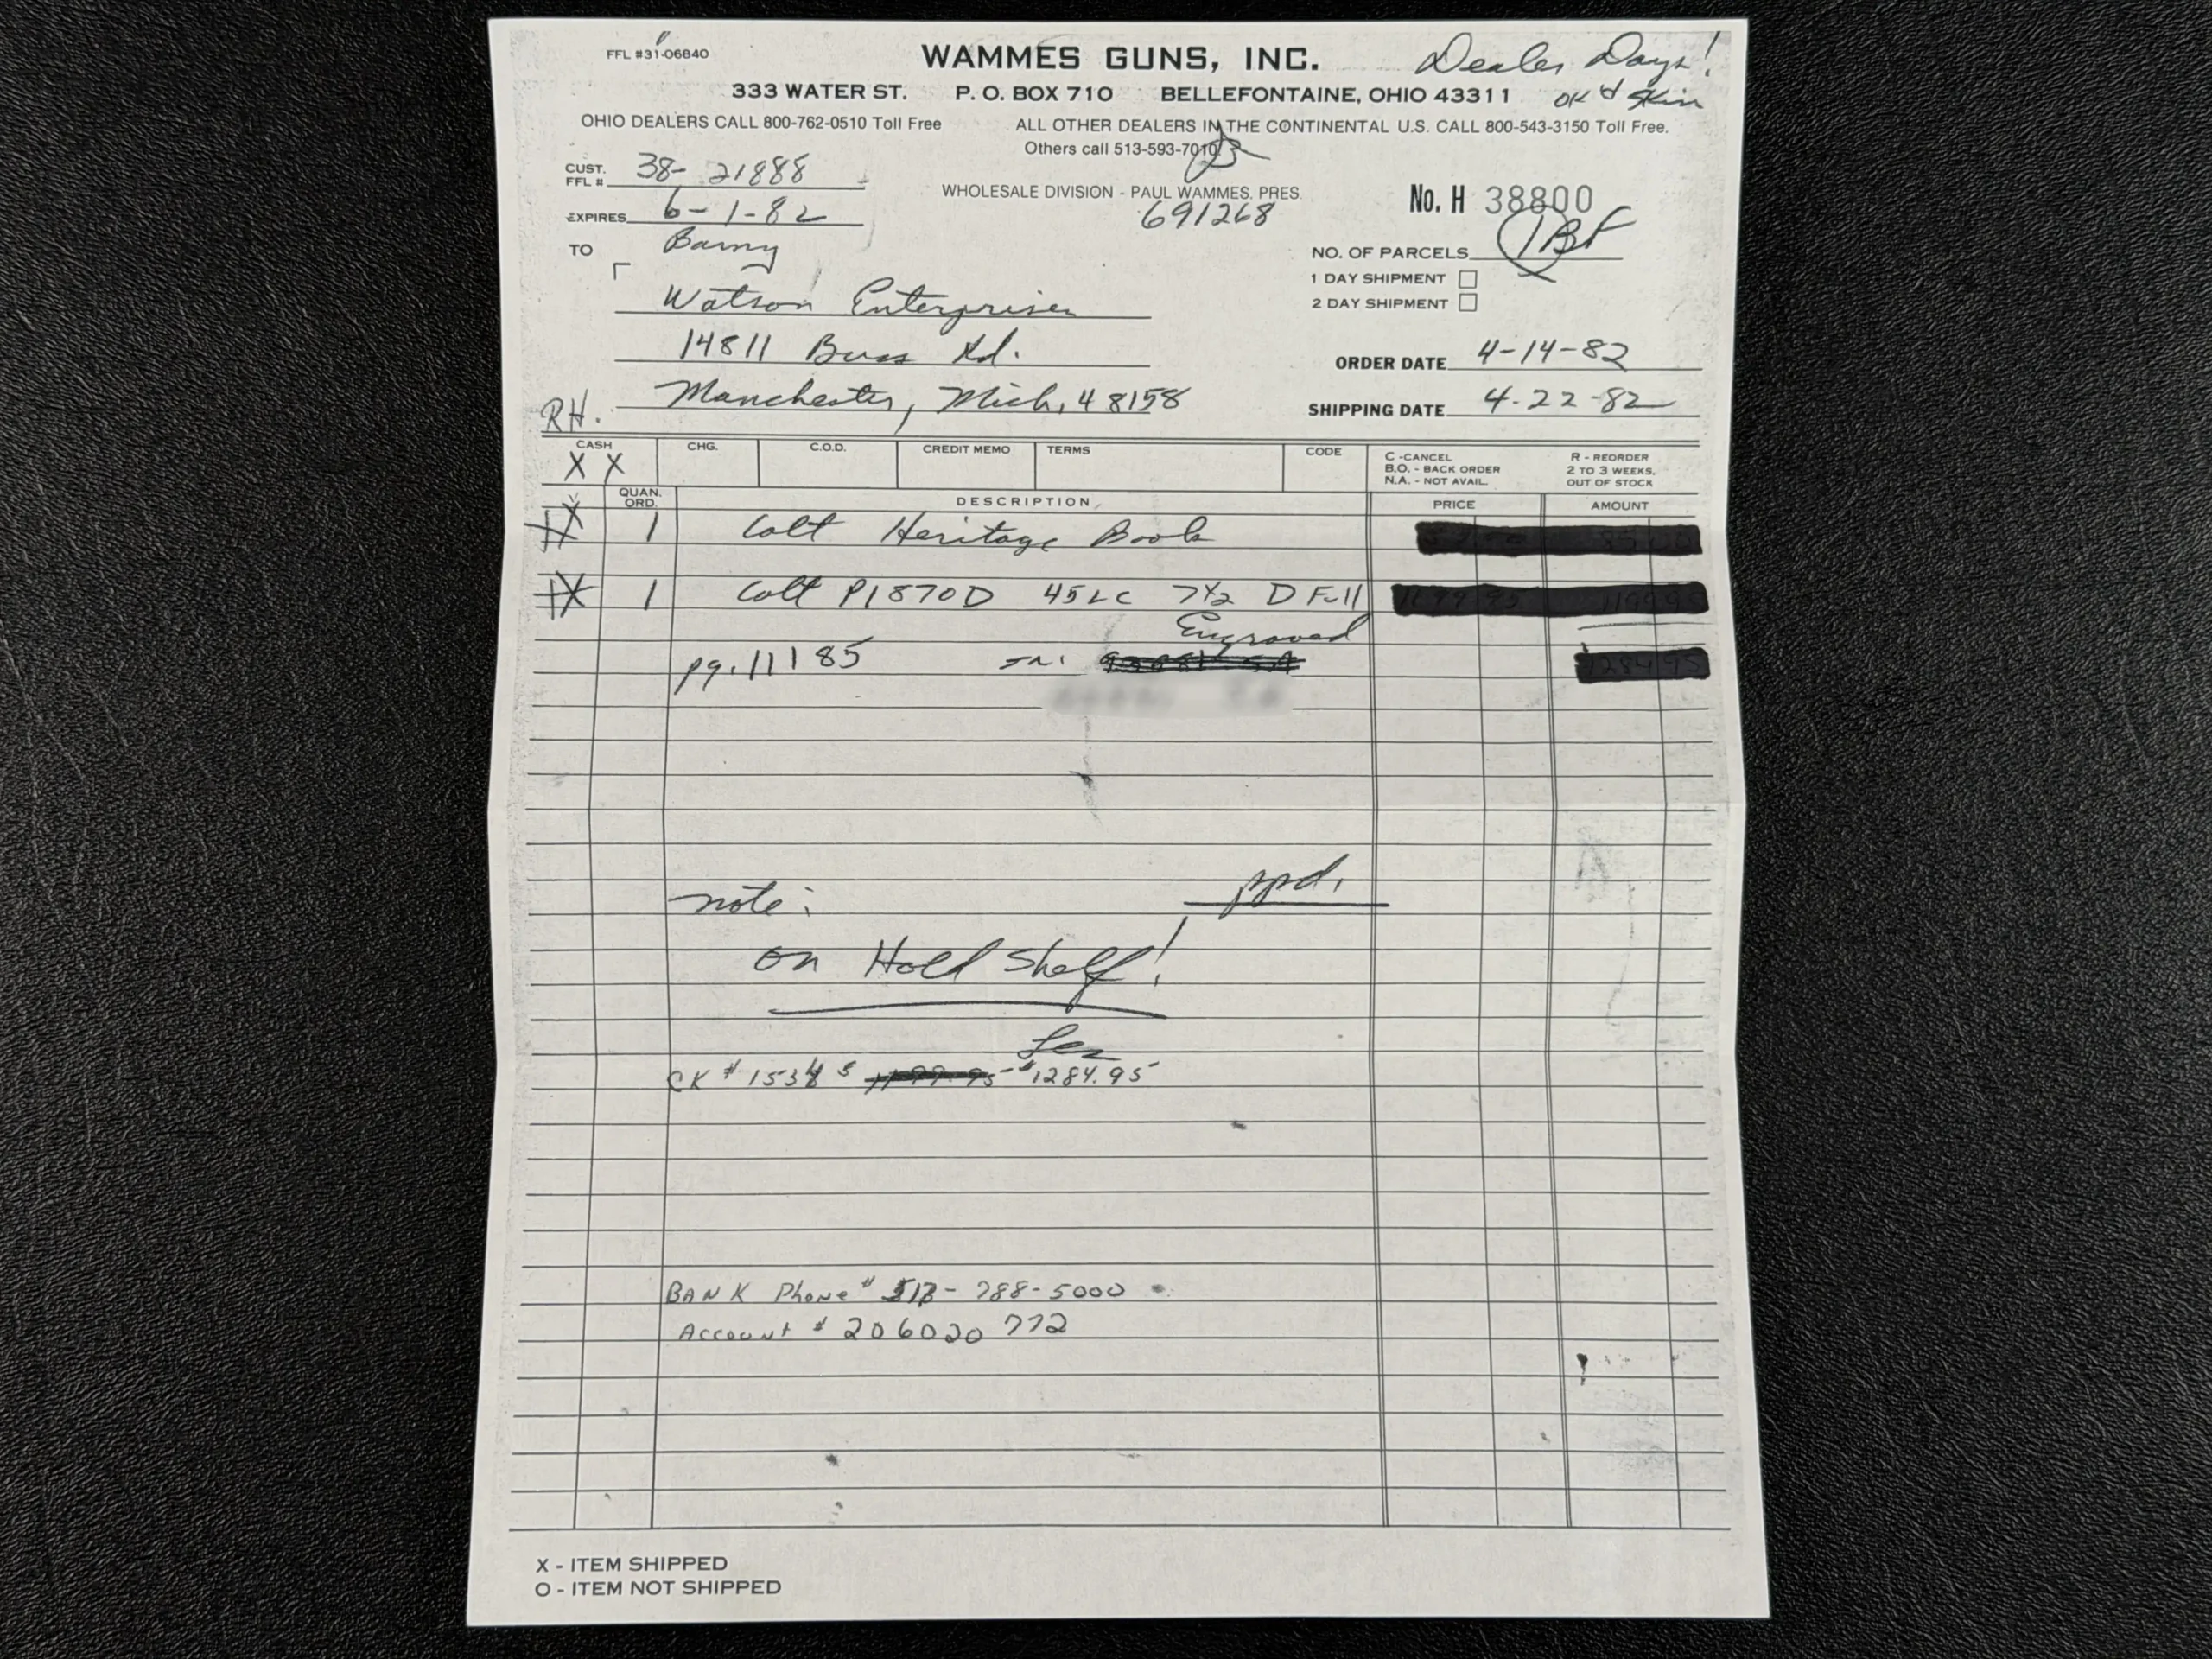 FFL #31-06840
WAMMES GUNS, INC.
Dealer Days!
333 WATER ST. P. O. BOX 710 BELLEFONTAINE, OHIO 43311
OK'd
OHIO DEALERS CALL 800-762-0510 Toll Free
ALL OTHER DEALERS IN THE CONTINENTAL U.S. CALL 800-543-3150 Toll Free.
Others call 513-593-7010
CUST. FFL # 38- 21888
WHOLESALE DIVISION - PAUL WAMMES, PRES.
691268
No. H 38800
EXPIRES 6-1-82
TO
NO. OF PARCELS
1 DAY SHIPMENT
2 DAY SHIPMENT
Watson Enterprises
14811 Buss Rd.
Manchester, Mich, 48158
RH.
ORDER DATE 4-14-82
SHIPPING DATE 4-22-82
CASH CHG. C.O.D. CREDIT MEMO TERMS CODE
X X
C -CANCEL
B.O. - BACK ORDER
N.A. - NOT AVAIL.
R - REORDER
2 TO 3 WEEKS,
OUT OF STOCK
QUAN. ORD. DESCRIPTION PRICE AMOUNT
X 1 Colt Heritage Book
X 1 Colt P1870D 45LC 7½ D Full
Engraved
pg. 11185
note: ppd.
on Hold Shelf!
CK # $1284.95
BANK Phone # 788-5000
Account # 206020 772
X - ITEM SHIPPED
O - ITEM NOT SHIPPED